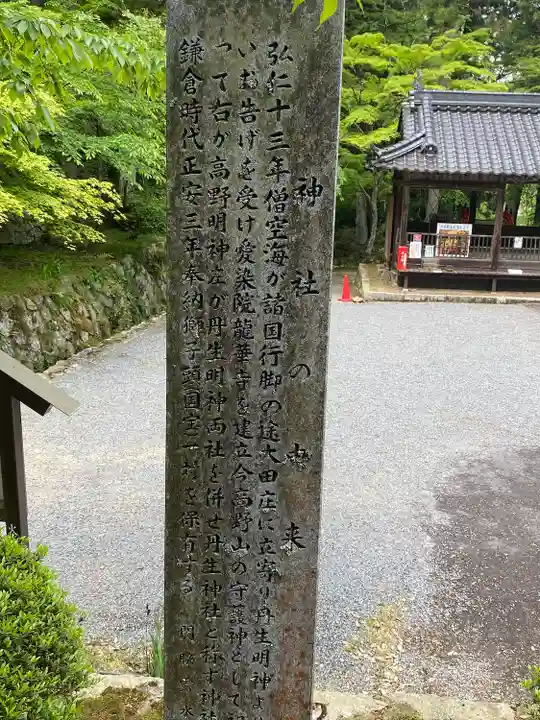 神社の由来
弘仁十三年僧空海が諸国行脚の途大田庄に立寄り丹生明神よ
いお告げを受け愛染院龍華寺を建立今高野山の守護神として
って右が高野明神左が丹生明神両社を併せ丹生神社と称す神
鎌倉時代正安三年奉納獅子頭国宝一対を保有する